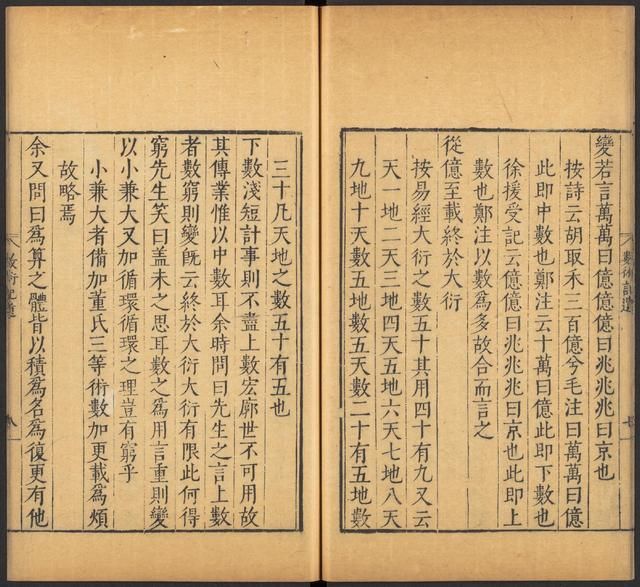 變若言萬萬曰億億億曰兆兆兆曰京也
按詩云胡取禾三百億兮毛注曰萬萬曰億
此即中數也鄭注云十萬曰億此即下數也
徐援受記云億億曰兆兆兆曰京也此即上
數也鄭注以數爲多故合而言之
從億至載終於大衍
按易經大衍之數五十其用四十有九又云
天一地二天三地四天五地六天七地八天
九地十天數五地數五天數二十有五地數
數術記遺
七
三十凡天地之數五十有五也
下數淺短計事則不盡上數宏廓世不可用故
其傳業惟以中數耳余時問曰先生之言上數
者數窮則變旣云終於大衍大衍有限此何得
窮先生笑曰蓋未之思耳數之爲用言重則變
以小兼大又加循環循環之理豈有窮乎
小兼大者備加董氏三等術數加更載爲煩
故略焉
余又問曰爲算之體皆以積爲名爲復更有他
數術記遺
八